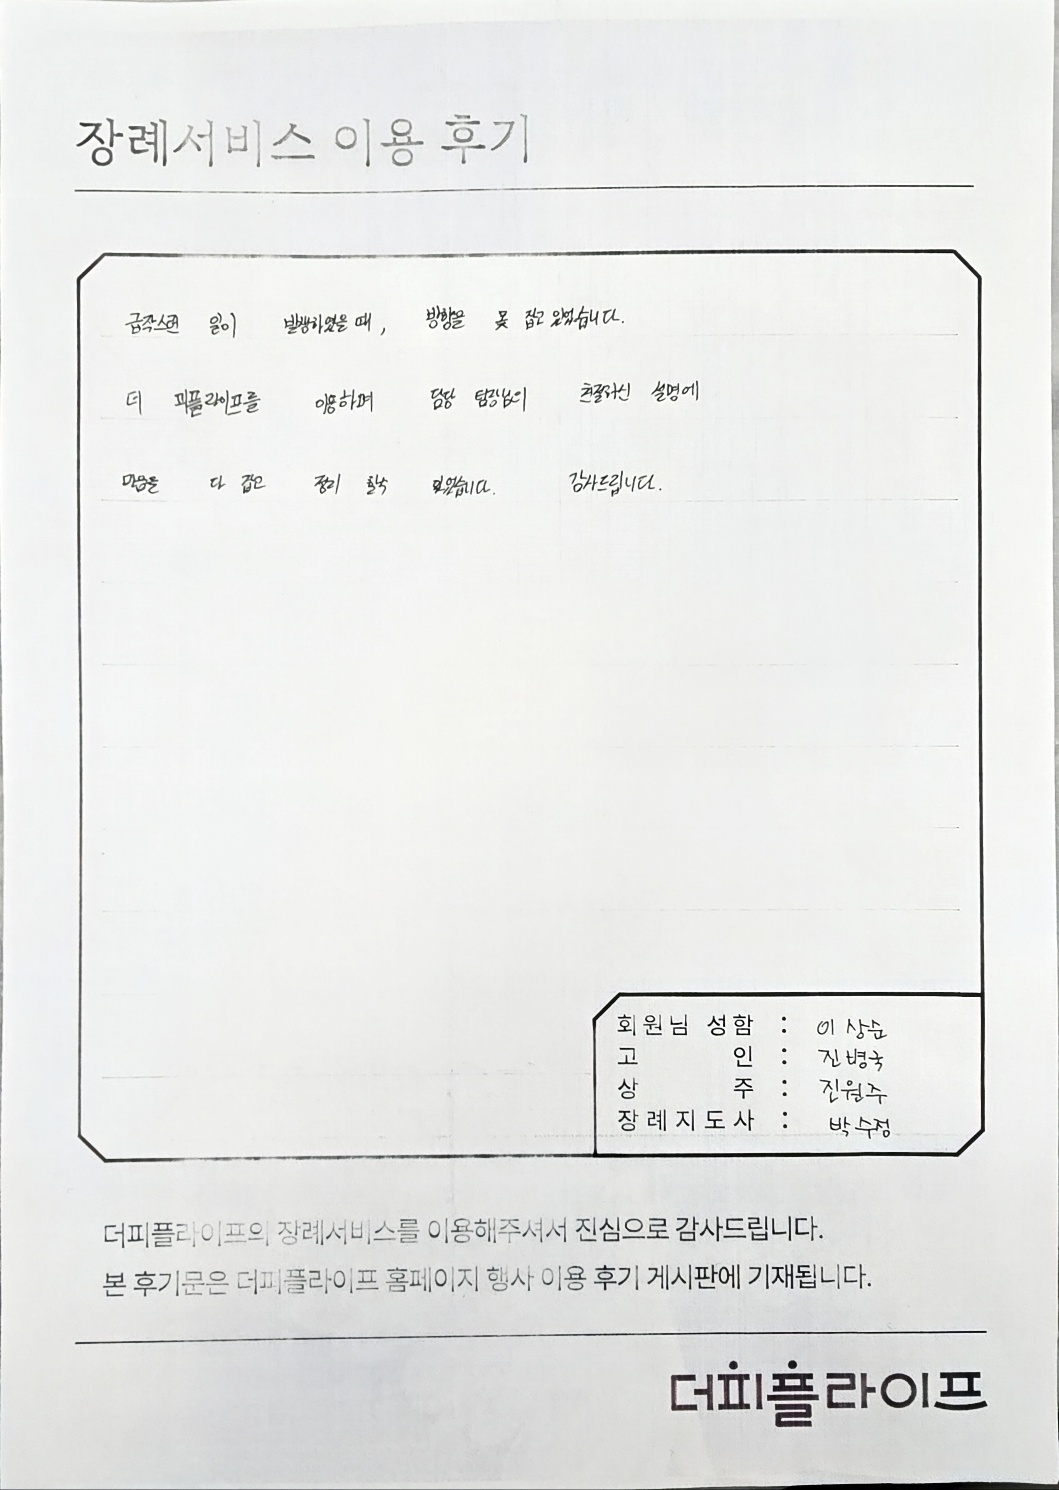 장례서비스 이용 후기
급작스런 일이 발생하였을 때, 방향을 못 잡고 있었습니다.
더 피플라이프를 이용하며 담당 팀장님의 친절하신 설명에
마음을 다 잡고 정리 할수 있었습니다. 감사드립니다.
회원님 성함 : 이상순
고 인 : 진병국
상 주 : 진원주
장례지도사 : 박수정
더피플라이프의 장례서비스를 이용해주셔서 진심으로 감사드립니다.
본 후기문은 더피플라이프 홈페이지 행사 이용 후기 게시판에 기재됩니다.
더피플라이프